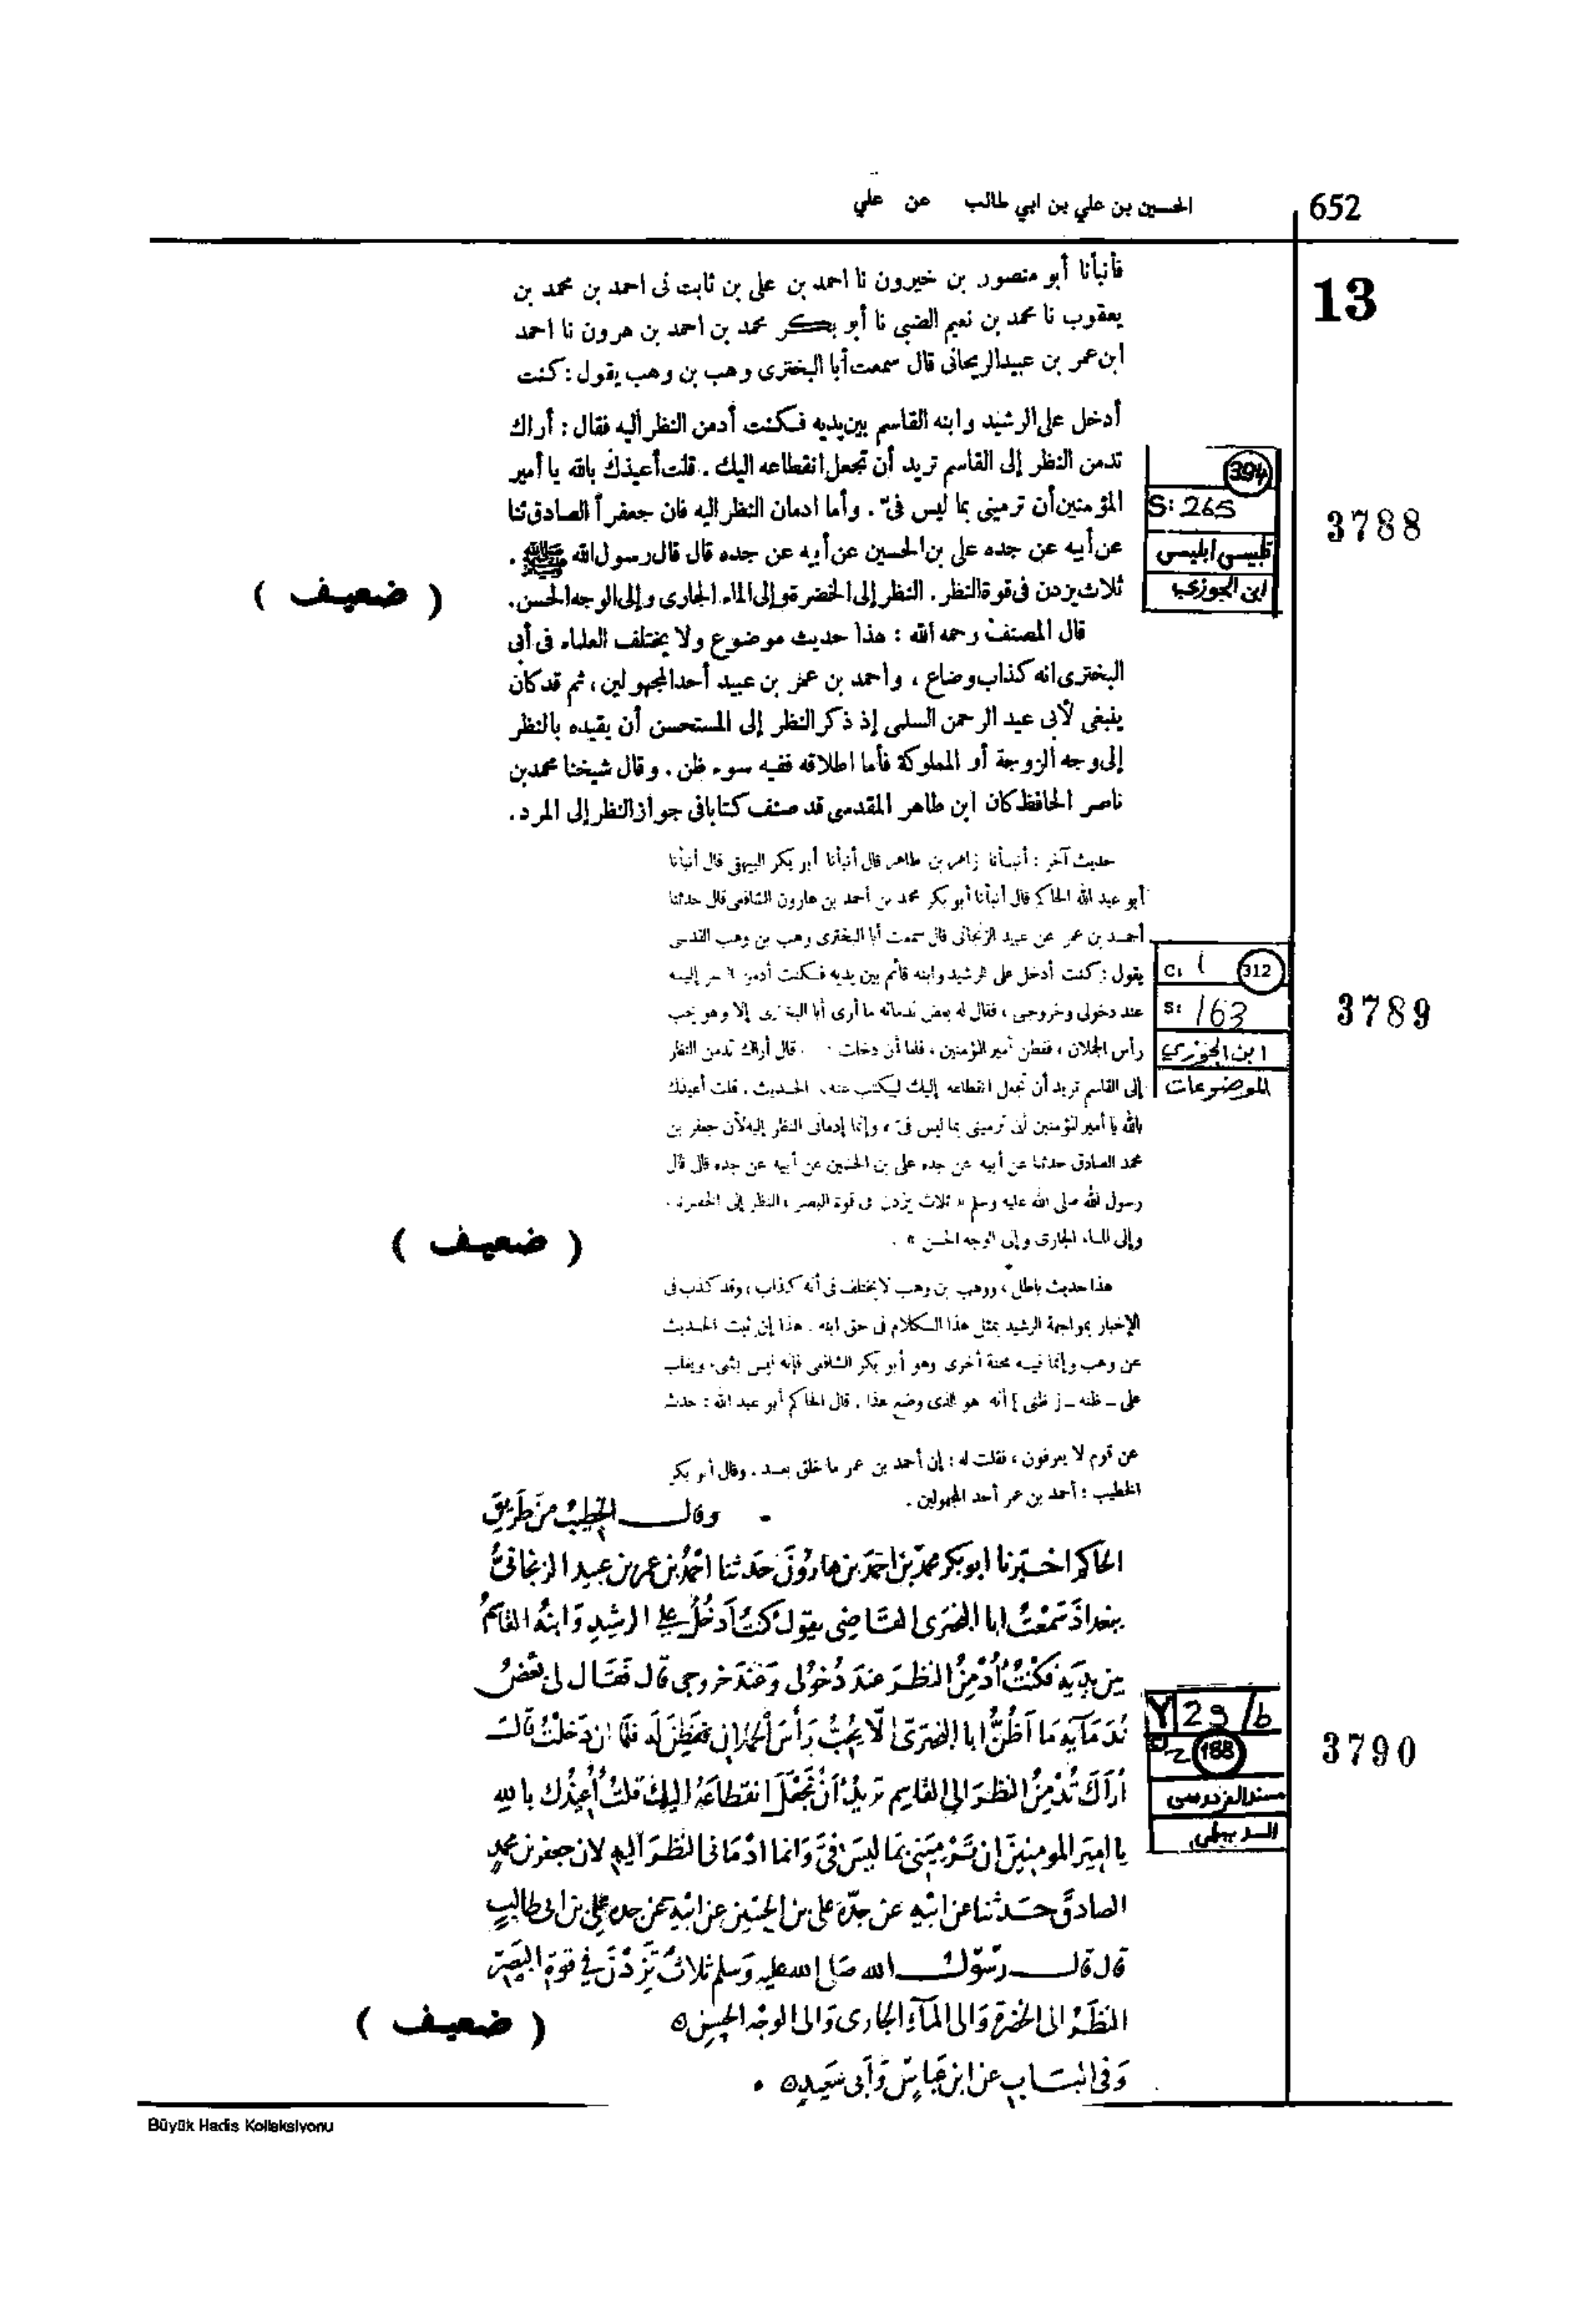 652
الحسين بن علي بن ابي طالب عن علي
13
فأنبأنا أبو منصور بن خيرون نا احمد بن على بن ثابت نى احمد بن محمد بن
يعقوب نا محمد بن نعيم الضبى نا أبو بكر محمد بن احمد بن هرون نا احمد
ابن عمر بن عبيد الريحانى قال سمعت أبا البخترى وهب بن وهب يقول : كنت
أدخل على الرشيد وابنه القاسم بين يديه فكنت أدمن النظر اليه فقال : أراك
تدمن النظر إلى القاسم تريد أن تجعل انقطاعه اليك . قلت أعيذك بالله يا أمير
المؤمنين أن ترمينى بما ليس فىّ . وأما ادمان النظر اليه فان جعفراً الصادق ثنا
عن أبيه عن جده على بن الحسين عن أبيه عن جده قال قال رسول الله ﷺ .
ثلاث يزدن فى قوة النظر . النظر إلى الخضرة وإلى الماء الجارى وإلى الوجه الحسن .
( ضعيف )
394
S: 265
تلبيس ابليس
ابن الجوزي
3788
قال المصنف رحمه الله : هذا حديث موضوع ولا يختلف العلماء فى أبى
البخترى انه كذاب وضاع ، واحمد بن عمر بن عبيد أحد المجهولين ، ثم قد كان
ينبغى لأبى عبد الرحمن السلمى إذ ذكر النظر إلى المستحسن أن يقيده بالنظر
إلى وجه الزوجة أو المملوكة فأما اطلاقه ففيه سوء ظن . وقال شيخنا محمد بن
ناصر الحافظ كان ابن طاهر المقدسى قد صنف كتابا فى جواز النظر إلى المرد .
حديث آخر : أنبأنا زاهر بن طاهر قال أنبأنا أبو بكر البيهقى قال أنبأنا
أبو عبد الله الحاكم قال أنبأنا أبو بكر محمد بن أحمد بن هارون الشافعى قال حدثنا
أحمد بن عمر بن عبيد الزنجانى قال سمعت أبا البخترى وهب بن وهب القدسى
يقول : كنت أدخل على الرشيد وابنه قائم بين يديه فكنت أدمن إليه
عند دخولى وخروجى ، فقال له بعض ندمائه ما أرى أبا البخترى إلا وهو يحب
رأس الحملان ، ففطن أمير المؤمنين ، فلما أن دخلت . قال أراك تدمن النظر
إلى القاسم تريد أن تجعل انقطاعه إليك ليكتب عنك الحديث . قلت أعيذك
بالله يا أمير المؤمنين أن ترمينى بما ليس فىّ ، وإنما إدمانى النظر إليه لأن جعفر بن
محمد الصادق حدثنا عن أبيه عن جده على بن الحسين عن أبيه عن جده قال قال
رسول الله صلى الله عليه وسلم « ثلاث يزدن فى قوة البصر ، النظر إلى الخضرة .
وإلى الماء الجارى وإلى الوجه الحسن » .
( ضعيف )
C: 1 312
S: 163
ابن الجوزي
الموضوعات
3789
هذا حديث باطل ، ووهب بن وهب لا يختلف فى أنه كذاب ، وقد كذب فى
الإخبار بمواجهة الرشيد بمثل هذا الكلام فى حق ابنه . هذا إن ثبت الحديث
عن وهب وإنما فيه محنة أخرى وهو أبو بكر الشافعى فإنه ليس بشىء ويغلب
على ـ ظنه ـ [ ظنى ] أنه هو الذى وضع هذا . قال الحاكم أبو عبد الله : حدث
عن قوم لا يعرفون ، فقلت له : إن أحمد بن عمر ما خلق بعد . وقال أبو بكر
الخطيب : أحمد بن عمر أحد المجهولين .
• وقال الخطيب من طريق
الحاكم اخبرنا ابو بكر محمد بن احمد بن هارون حدثنا احمد بن عمر بن عبيد الزنجانى
ببغداد سمعت ابا البخترى القاضى يقول كنت أدخل على الرشيد وابنه القاسم
بين يديه فكنت أدمن النظر عند دخولى وعند خروجى قال فقال لى بعض
ندمايه ما أظن ابا البخترى الا يحب رأس الحملان ففطن له فلما ان دخلت قال
أراك تدمن النظر الى القاسم تريد أن تجعل انقطاعه اليك قلت أعيذك بالله
يا امير المومنين ان ترمينى بما ليس فى وانما ادمانى النظر اليه لان جعفر بن محمد
الصادق حدثنا عن ابيه عن جده على بن الحسين عن ابيه عن جده على بن ابى طالب
قال قال رسول الله صلى الله عليه وسلم ثلاث تزدن فى قوة البصر
النظر الى الخضرة والى المآء الجارى والى الوجه الحسن ٥
( ضعيف )
Y 29/b
188
مسند الفردوس
الديلمي
3790
وفى الباب عن ابن عباس وأبى سعيد ٥ •
Büyük Hadis Kolleksiyonu